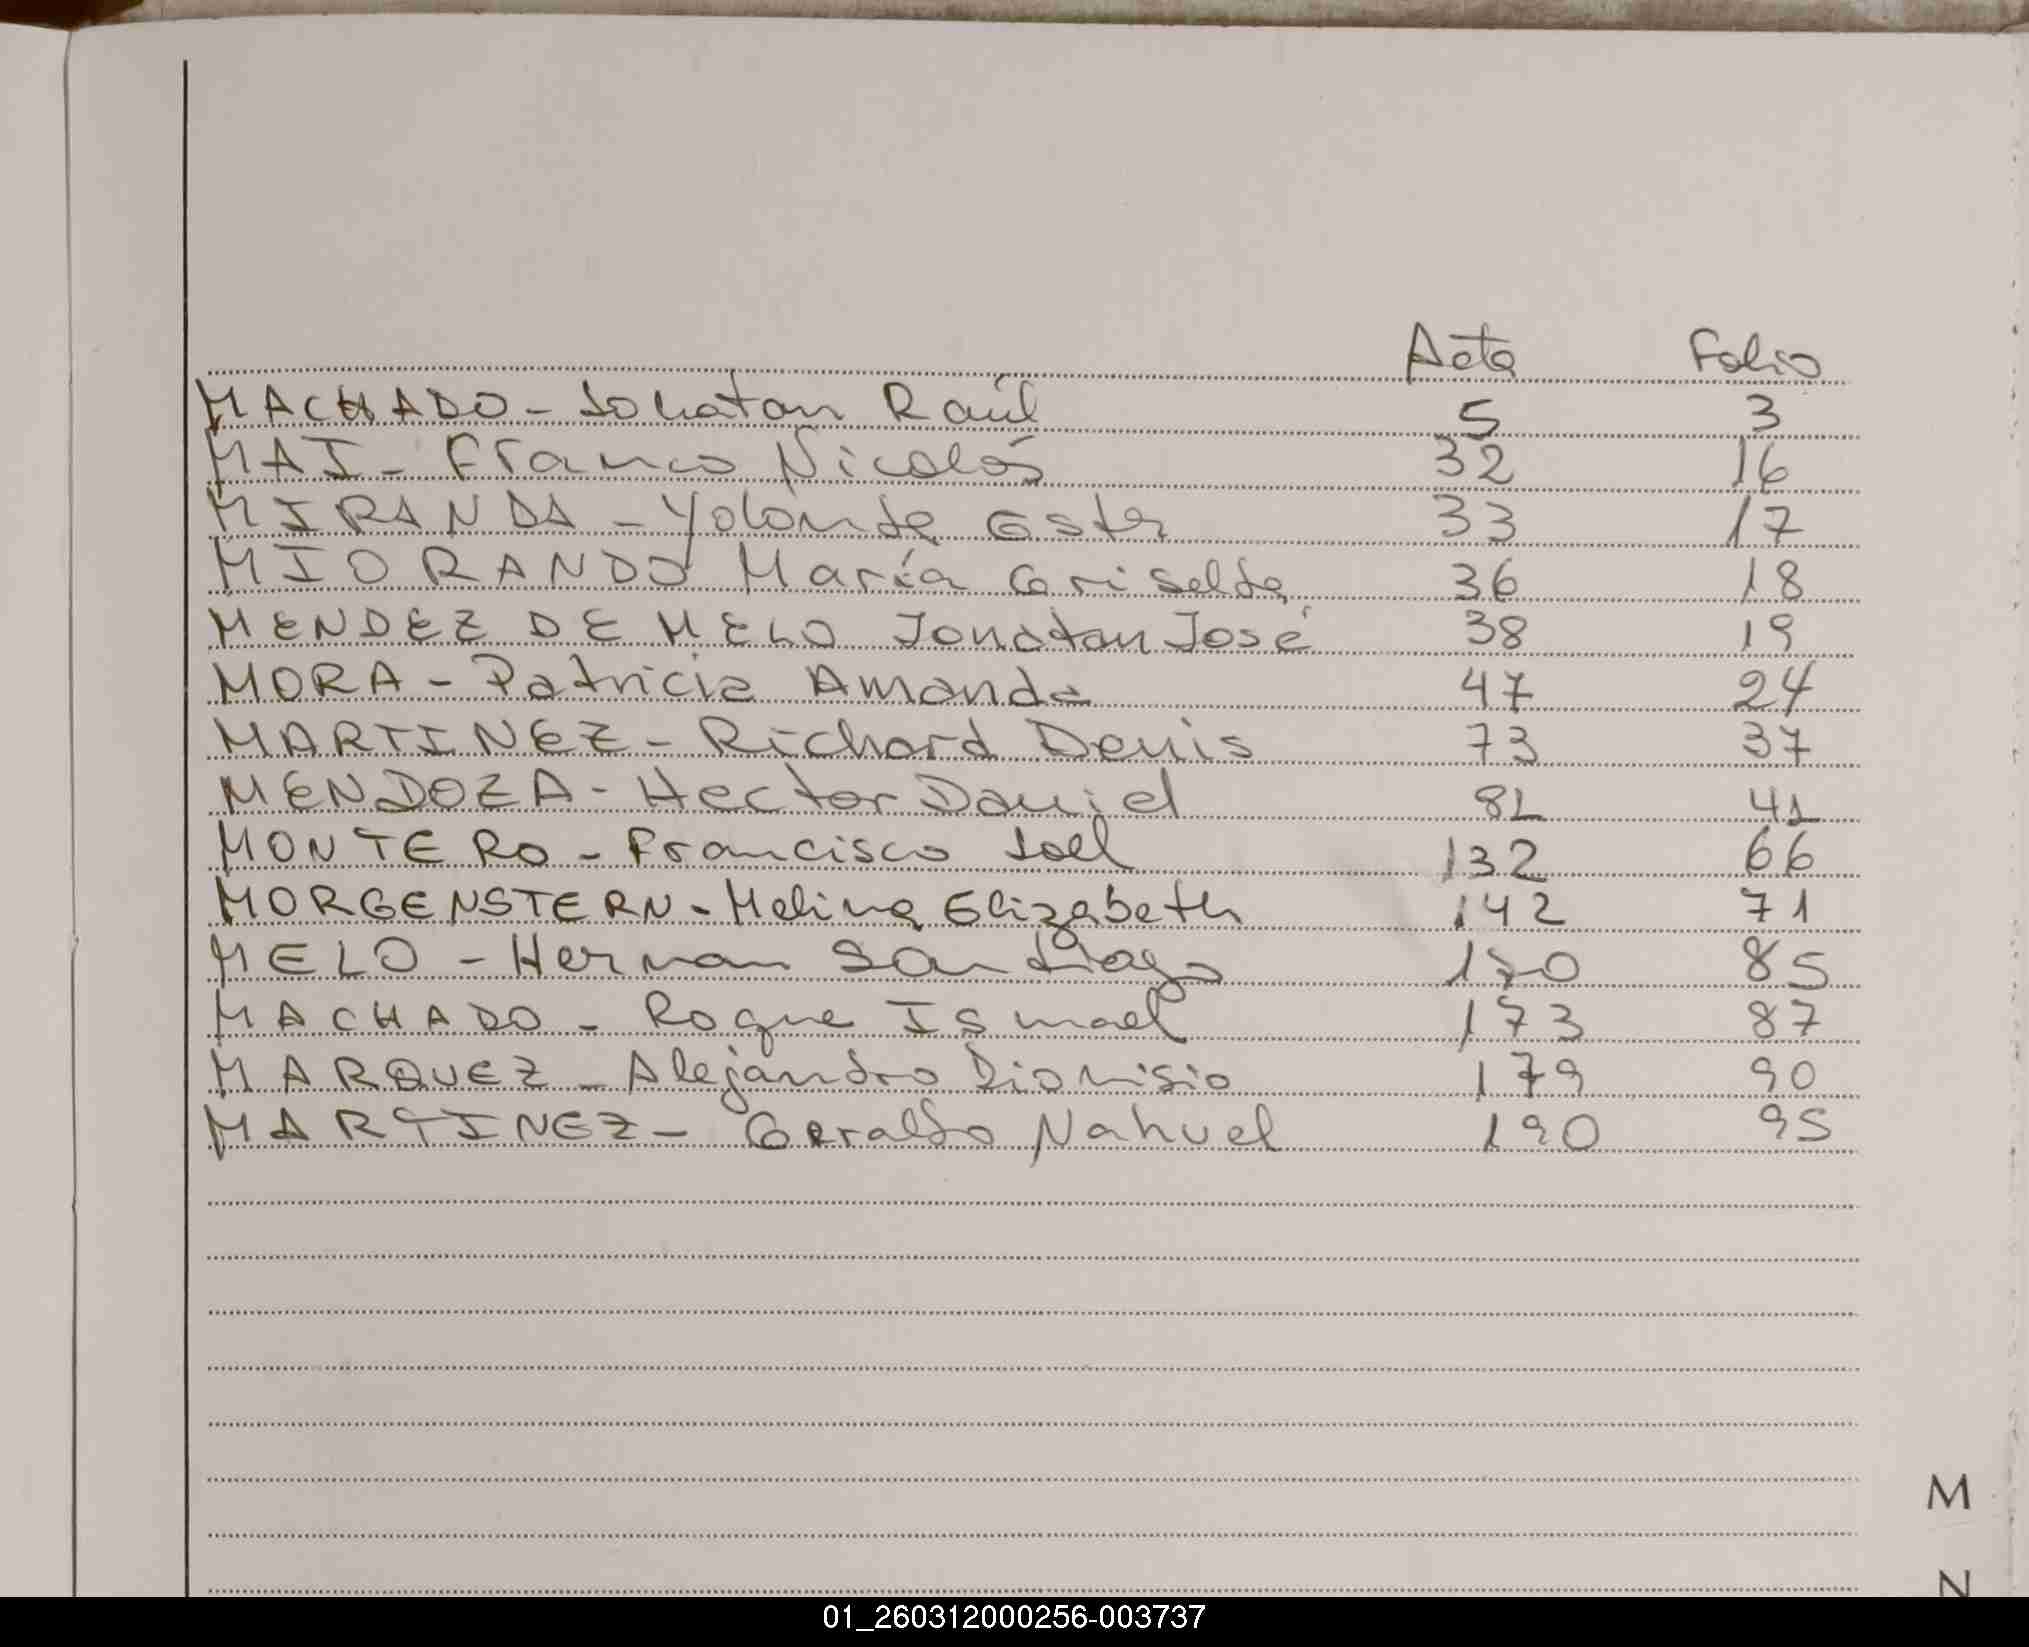 Acta Folio
MACHADO - Johatan Raúl 5 3
MAI - Franco Nicolás 32 16
MIRANDA - Yolanda Ester 33 17
MIORANDO María Griselda 36 18
MENDEZ DE MELO Jonatan José 38 19
MORA - Patricia Amanda 47 24
MARTINEZ - Richard Denis 73 37
MENDOZA - Hector Daniel 81 41
MONTERO - Francisco Joel 132 66
MORGENSTERN - Melina Elizabeth 142 71
MELO - Hernan Santiago 170 85
MACHADO - Roque Ismael 173 87
MARQUEZ - Alejandro Dionisio 179 90
MARTINEZ - Geraldo Nahuel 190 95
M
N
01_260312000256-003737